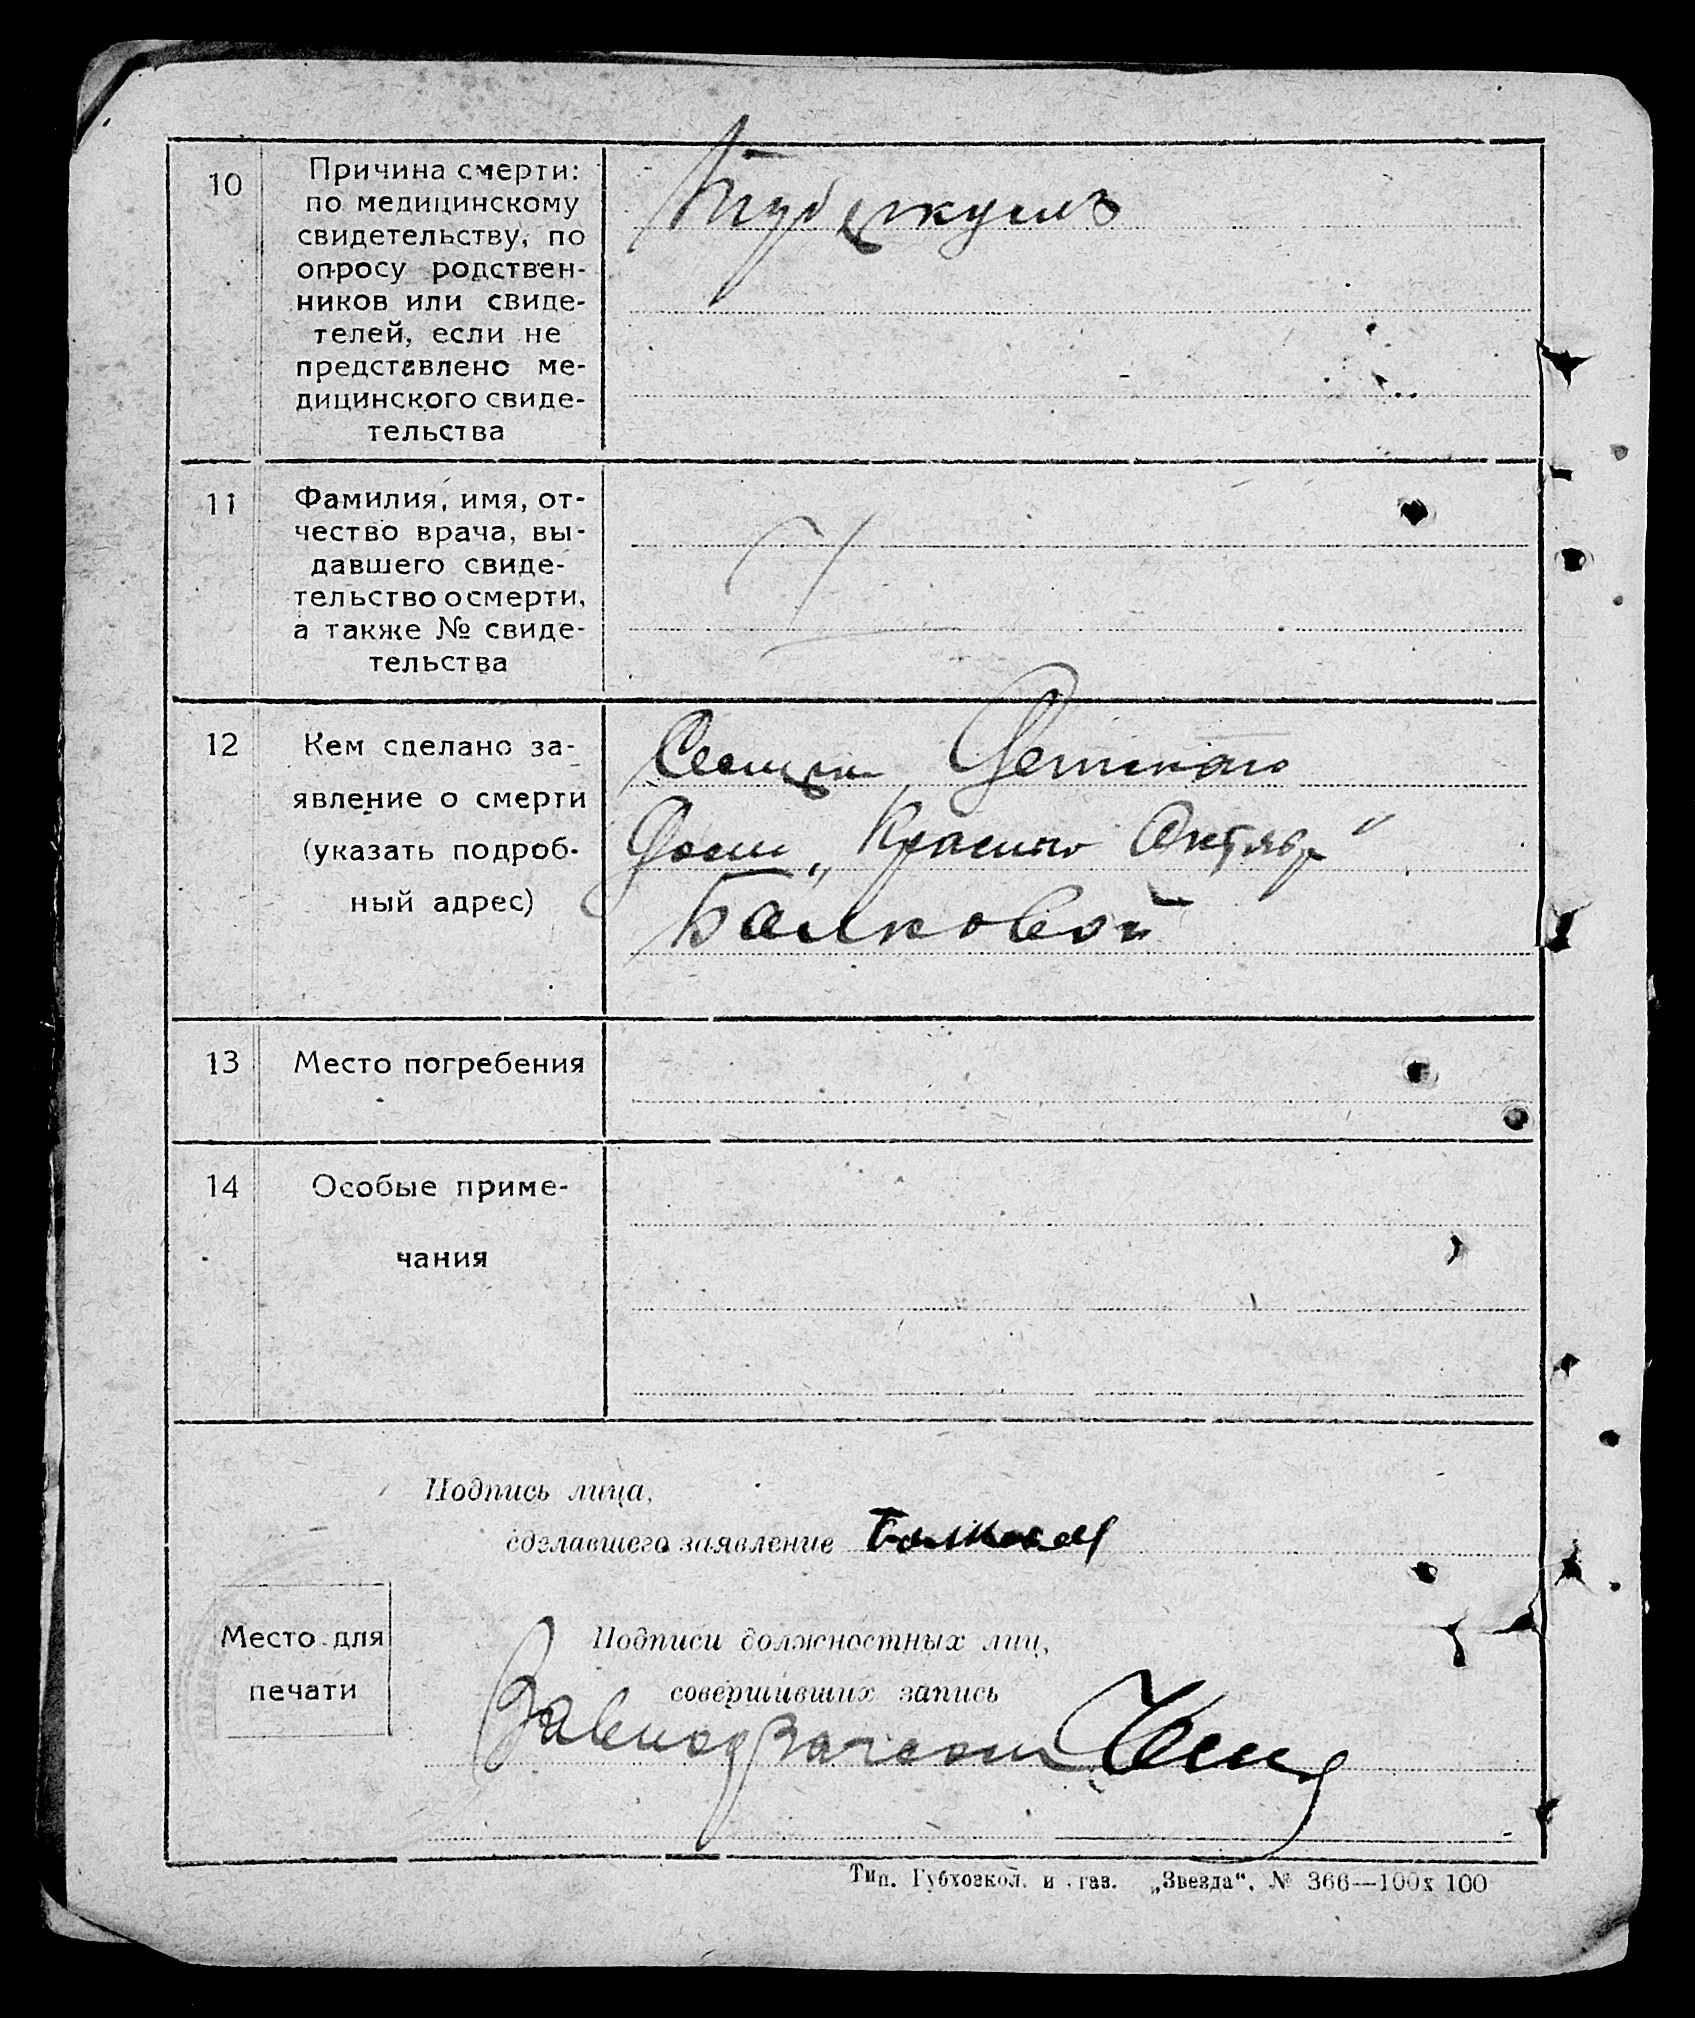 10
Причина смерти:
по медицинскому
свидетельству, по
опросу родствен-
ников или свиде-
телей, если не
представлено ме-
дицинского свиде-
тельства
Туберкулез
11
Фамилия, имя, от-
чество врача, вы-
давшего свиде-
тельство о смерти,
а также № свиде-
тельства
12
Кем сделано за-
явление о смерти
(указать подроб-
ный адрес)
Сестрой Детского
Дома „Красный Октябрь"
Балковой
13
Место погребения
14
Особые приме-
чания
Подпись лица,
сделавшего заявление Балковая
Место для
печати
Подписи должностных лиц,
совершивших запись
Завподзагсом
Тип. Губхозкол. и газ. „Звезда“. № 366—100х100